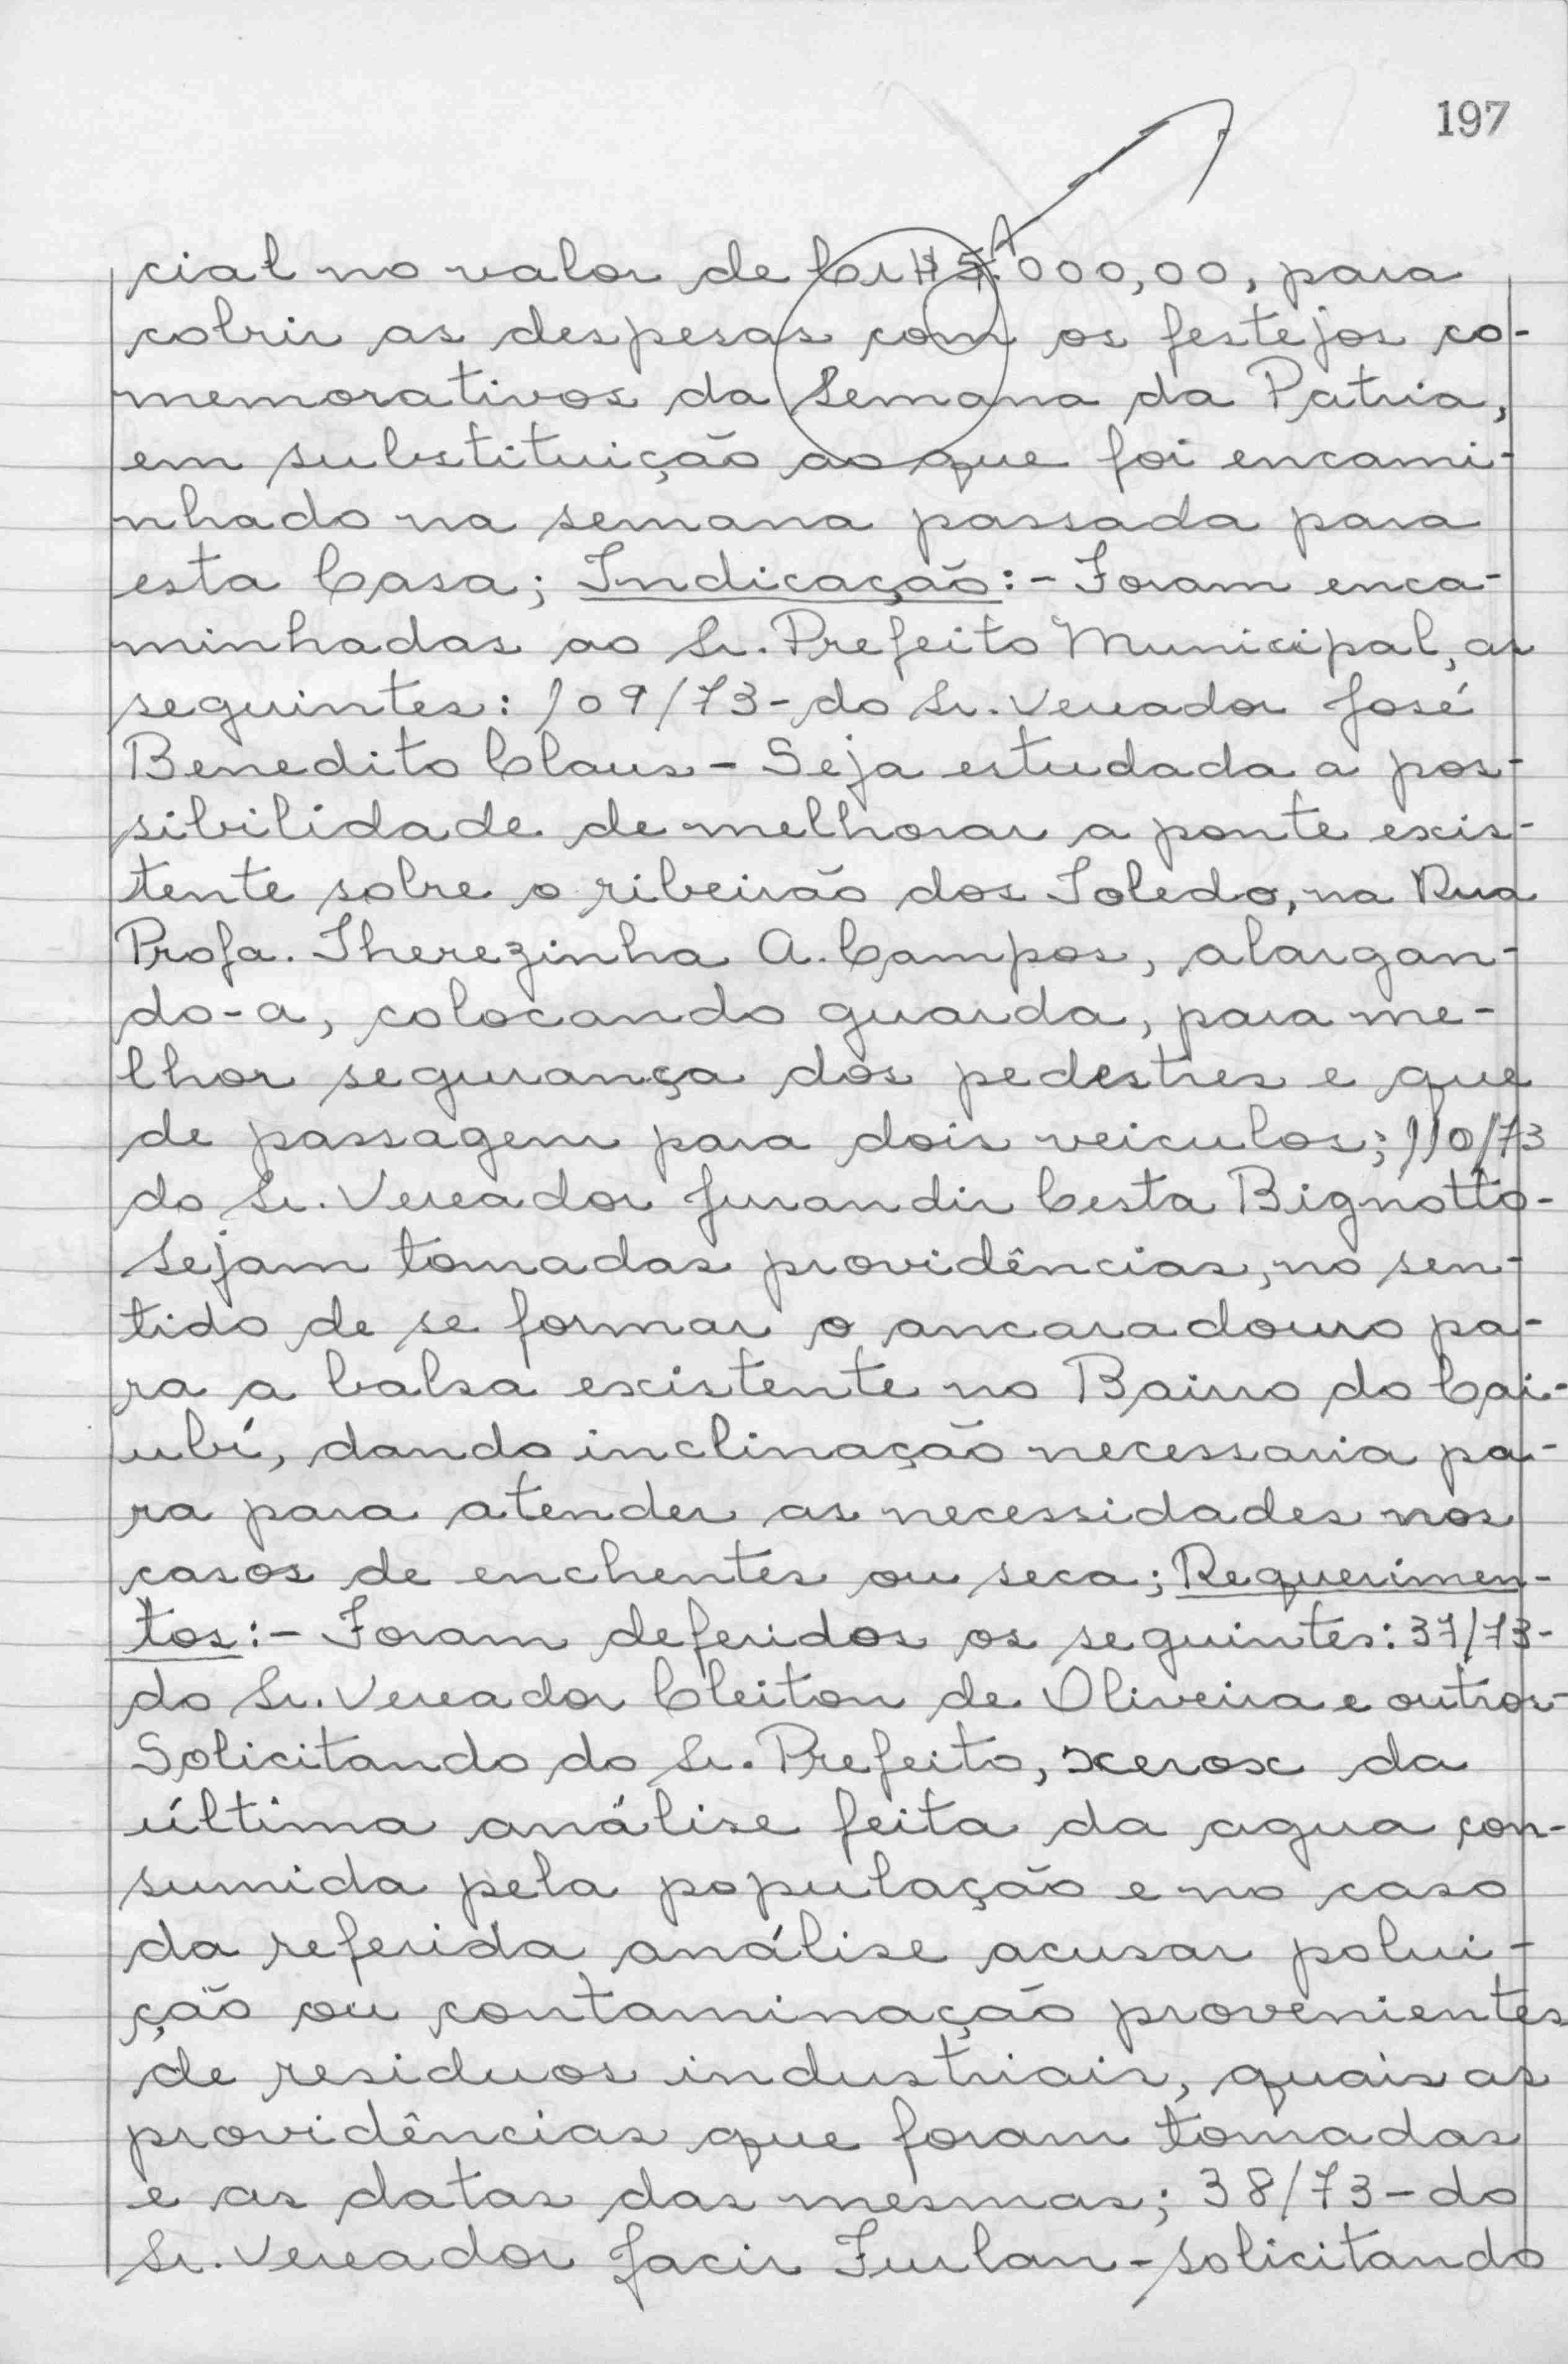 197
cial no valor de Cr$ 5.000,00, para
cobrir as despesas com os festejos co-
memorativos da Semana da Patria,
em substituição ao que foi encami-
nhado na semana passada para
esta Casa; Indicação:- Foram enca-
minhadas ao Sr. Prefeito Municipal, as
seguintes: 109/73- do Sr. Vereador José
Benedito Claus - Seja estudada a pos-
sibilidade de melhorar a ponte exis-
tente sobre o ribeirão dos Toledo, na Rua
Profa. Therezinha A. Campos, alargan-
do-a, colocando guarda, para me-
lhor segurança dos pedestres e que
de passagem para dois veiculos; 110/73
do Sr. Vereador Jurandir Cesta Bignotto-
Sejam tomadas providências, no sen-
tido de se formar o ancaradouro pa-
ra a balsa existente no Bairro do Cai-
ubí, dando inclinação necessaria pa-
ra para atender as necessidades nos
casos de enchentes ou seca; Requerimen-
tos:- Foram deferidos os seguintes: 37/73-
do Sr. Vereador Cleiton de Oliveira e outros-
Solicitando do Sr. Prefeito, xerox da
última análise feita da agua con-
sumida pela população e no caso
da referida análise acusar polui-
ção ou contaminação provenientes
de residuos industriais, quais as
providências que foram tomadas
e as datas das mesmas; 38/73 - do
Sr. Vereador Jacir Furlan - solicitando